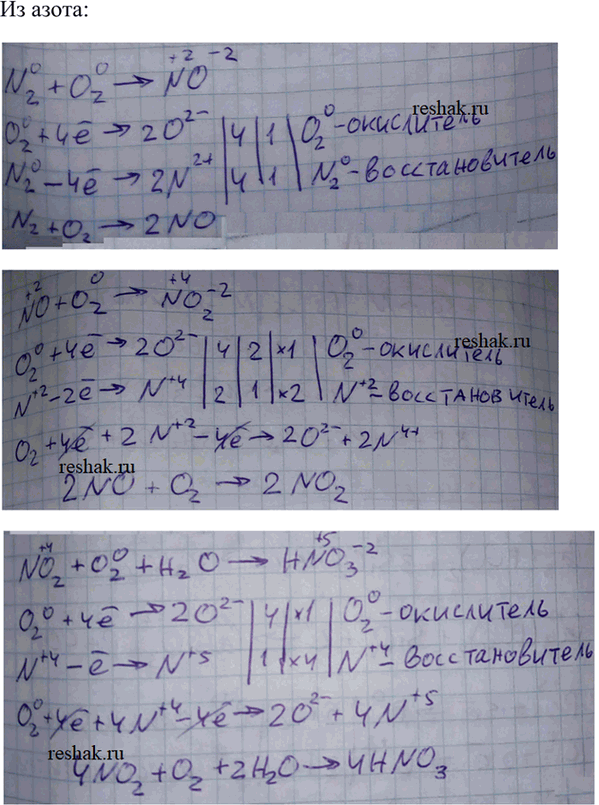 Из азота:
N₂⁰ + O₂⁰ → N⁺²O⁻²
reshak.ru
O₂⁰ + 4ē → 2O²⁻ | 4 | 1 | O₂⁰ - окислитель
N₂⁰ - 4ē → 2N²⁺ | 4 | 1 | N₂⁰ - восстановитель
N₂ + O₂ → 2NO
N⁺²O + O₂⁰ → N⁺⁴O₂⁻²
reshak.ru
O₂⁰ + 4ē → 2O²⁻ | 4 | 2 | ×1 | O₂⁰ - окислитель
N⁺² - 2ē → N⁺⁴ | 2 | 1 | ×2 | N⁺² - восстановитель
O₂ + 4ē + 2N⁺² - 4ē → 2O²⁻ + 2N⁴⁺
reshak.ru
2NO + O₂ → 2NO₂
N⁺⁴O₂ + O₂⁰ + H₂O → HN⁺⁵O₃⁻²
O₂⁰ + 4ē → 2O²⁻ | 4 | ×1 | O₂⁰ - окислитель
N⁺⁴ - ē → N⁺⁵ | 1 | ×4 | N⁺⁴ - восстановитель
O₂⁰ + 4ē + 4N⁺⁴ - 4ē → 2O²⁻ + 4N⁺⁵
reshak.ru
4NO₂ + O₂ + 2H₂O → 4HNO₃